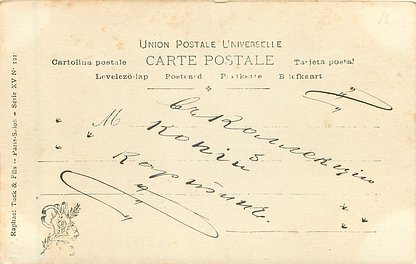 UNION POSTALE UNIVERSELLE
Cartolina postale CARTE POSTALE Tarjeta postal
Levelező-lap Postcard Postkarte Briefkaart
M
Въ Коллекцію
Копій
Картинъ.
Raphael Tuck & Fils — Paris-Salon — Série XV № 121